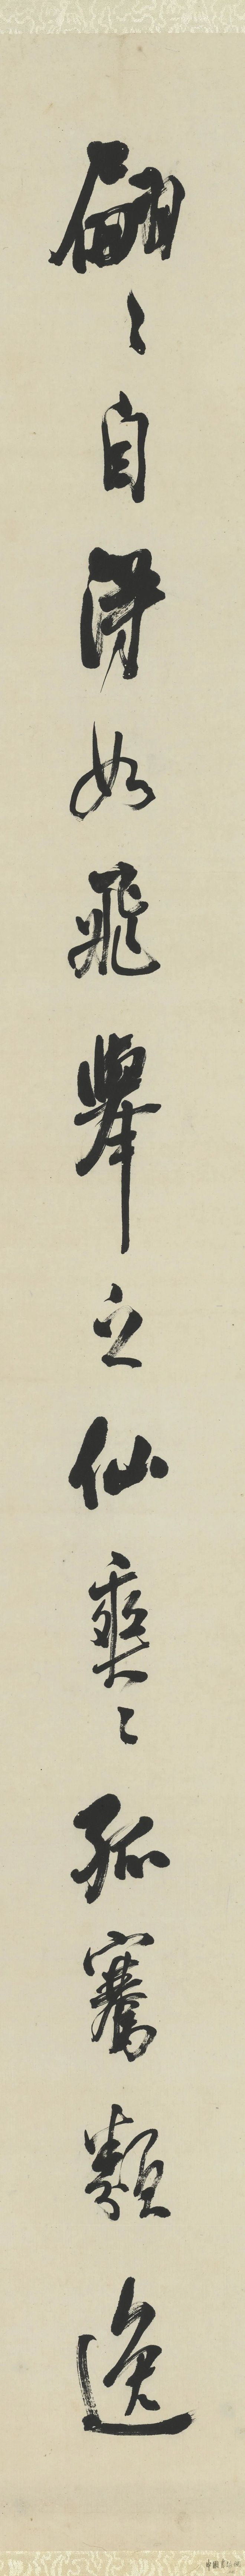 翩〻自得如飛舉之仙爽〻孤騫類逸